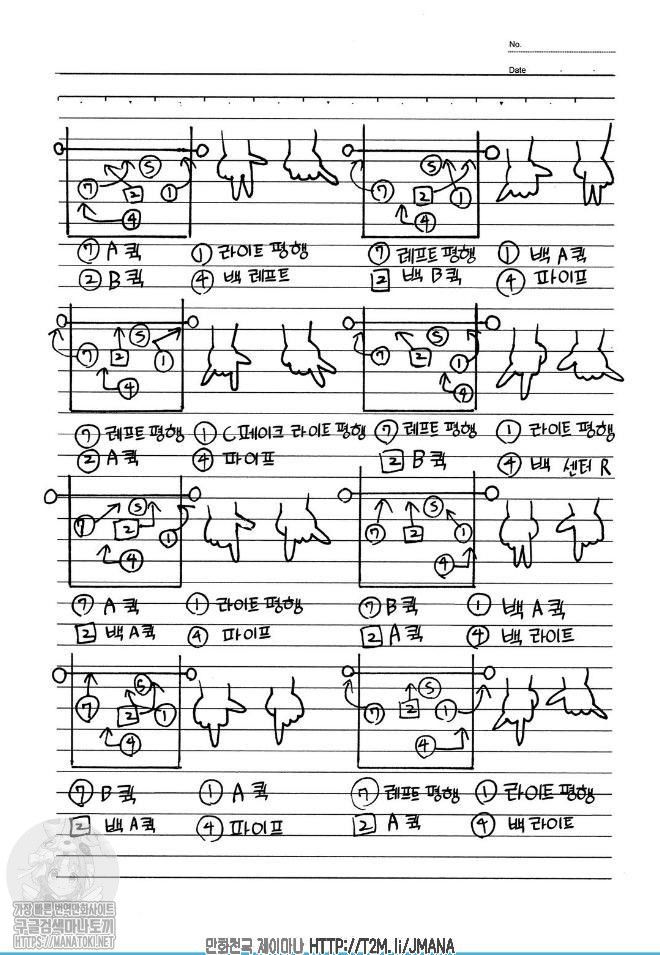 No.
Date
⑤ ⑦ 2 ① ④
⑤ ⑦ 2 ① ④
⑦ A 퀵 ① 라이트 평행
② B 퀵 ④ 백 레프트
⑦ 레프트 평행 ① 백 A 퀵
2 백 B 퀵 ④ 파이프
⑤ ⑦ 2 ① ④
⑤ ⑦ 2 ① ④
⑦ 레프트 평행 ① C 페이크 라이트 평행
② A 퀵 ④ 파이프
⑦ 레프트 평행 ① 라이트 평행
2 B 퀵 ④ 백 센터 R
⑤ ⑦ 2 ① ④
⑤ ⑦ 2 ① ④
⑦ A 퀵 ① 라이트 평행
2 백 A 퀵 ④ 파이프
⑦ B 퀵 ① 백 A 퀵
2 A 퀵 ④ 백 라이트
⑤ ⑦ 2 ① ④
⑤ ⑦ 2 ① ④
⑦ B 퀵 ① A 퀵
2 백 A 퀵 ④ 파이프
⑦ 레프트 평행 ① 라이트 평행
2 A 퀵 ④ 백 라이트
가장 빠른 번역만화사이트
구글검색마나토끼
HTTPS://MANATOKI.NET
만화천국 제이마나 HTTP://T2M.li/JMANA